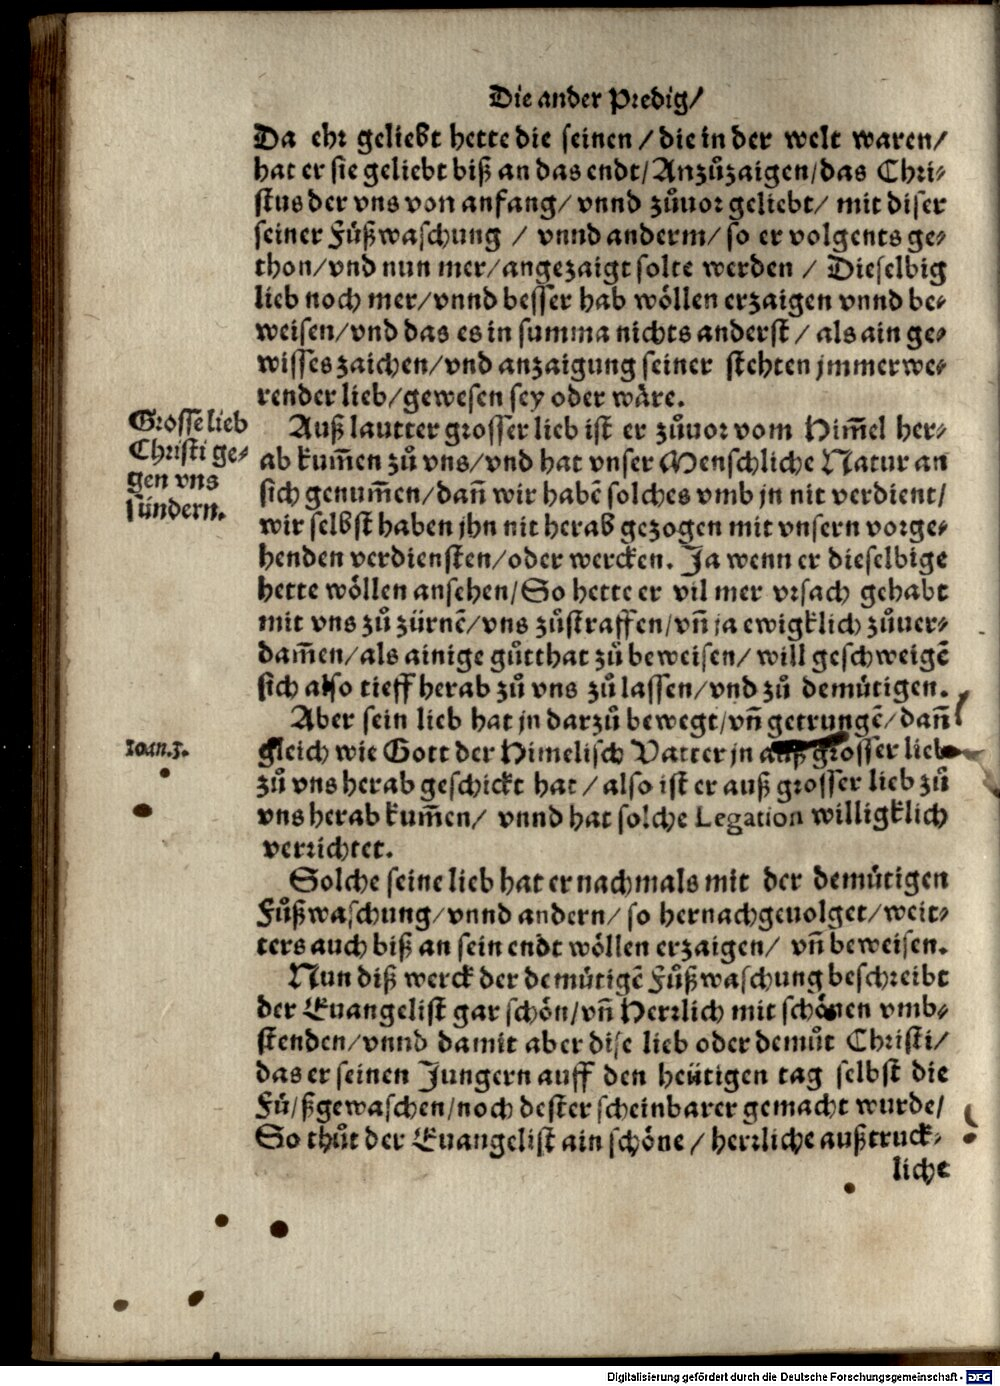 Die ander Predig/
Da ehr geliebt hette die seinen / die in der welt waren/
hat er sie geliebt biß an das endt/ Anzůzaigen/ das Chri⸗
stus der vns von anfang/ vnnd zůuor geliebt/ mit diser
seiner Fůßwaschung / vnnd anderm/ so er volgents ge⸗
thon/ vnd nun mer/ angezaigt solte werden / Dieselbig
lieb noch mer/ vnnd besser hab wöllen erzaigen vnnd be⸗
weisen/ vnd das es in summa nichts anderst / als ain ge⸗
wisses zaichen/ vnd anzaigung seiner stehten jmmerwe⸗
render lieb/ gewesen sey oder wäre.
Grosse lieb
Christi ge⸗
gen vns
sündern.
Auß lautter grosser lieb ist er zůuor vom Him̃el her⸗
ab kum̃en zů vns/ vnd hat vnser Menschliche Natur an
sich genum̃en/ dañ wir habẽ solches vmb jn nit verdient/
wir selbst haben jhn nit herab gezogen mit vnsern vorge⸗
henden verdiensten/ oder wercken. Ja wenn er dieselbige
hette wöllen ansehen/ So hette er vil mer vrsach gehabt
mit vns zů zürnẽ/ vns zůstraffen/ vñ ja ewigklich zůuer⸗
dam̃en/ als ainige gůtthat zů beweisen/ will geschweigẽ
sich also tieff herab zů vns zů lassen/ vnd zů demütigen.
Aber sein lieb hat jn darzů bewegt/ vñ getrungẽ/ dañ
Ioan.3.
gleich wie Gott der Himelisch Vatter jn auß grosser lieb
zů vns herab geschickt hat / also ist er auß grosser lieb zů
vns herab kum̃en/ vnnd hat solche Legation willigklich
verrichtet.
Solche seine lieb hat er nachmals mit der demütigen
Fůßwaschung/ vnnd andern/ so hernachgeuolget/ weit⸗
ters auch biß an sein endt wöllen erzaigen/ vñ beweisen.
Nun diß werck der demütigẽ Fůßwaschung beschreibt
der Euangelist gar schön/ vñ Herrlich mit schönen vmb⸗
stenden/ vnnd damit aber dise lieb oder demůt Christi/
das er seinen Jungern auff den heütigen tag selbst die
Fü/ßgewaschen/ noch dester scheinbarer gemacht wurde/
So thůt der Euangelist ain schöne / herrliche außtruck⸗
liche
Digitalisierung gefördert durch die Deutsche Forschungsgemeinschaft - DFG